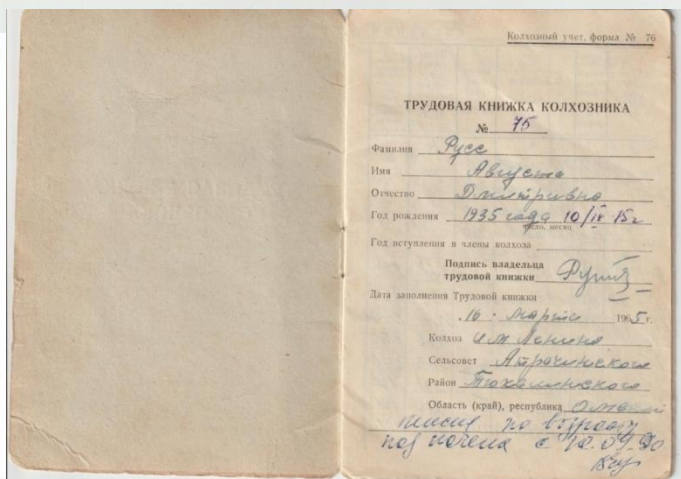 Колхозный учет, форма № 76
ТРУДОВАЯ КНИЖКА КОЛХОЗНИКА
№ 75
Фамилия Русс
Имя Августа
Отчество Дмитривна
Год рождения 1935 года 10/IV
число, месяц
Год вступления в члены колхоза
Подпись владельца
трудовой книжки
Дата заполнения Трудовой книжки
16 · Марта 1965 г.
Колхоз им Ленина
Сельсовет Атрачинского
Район Тюкалинского
Область (край), республика Омской
пенсия по возрасту
с 10.04.90